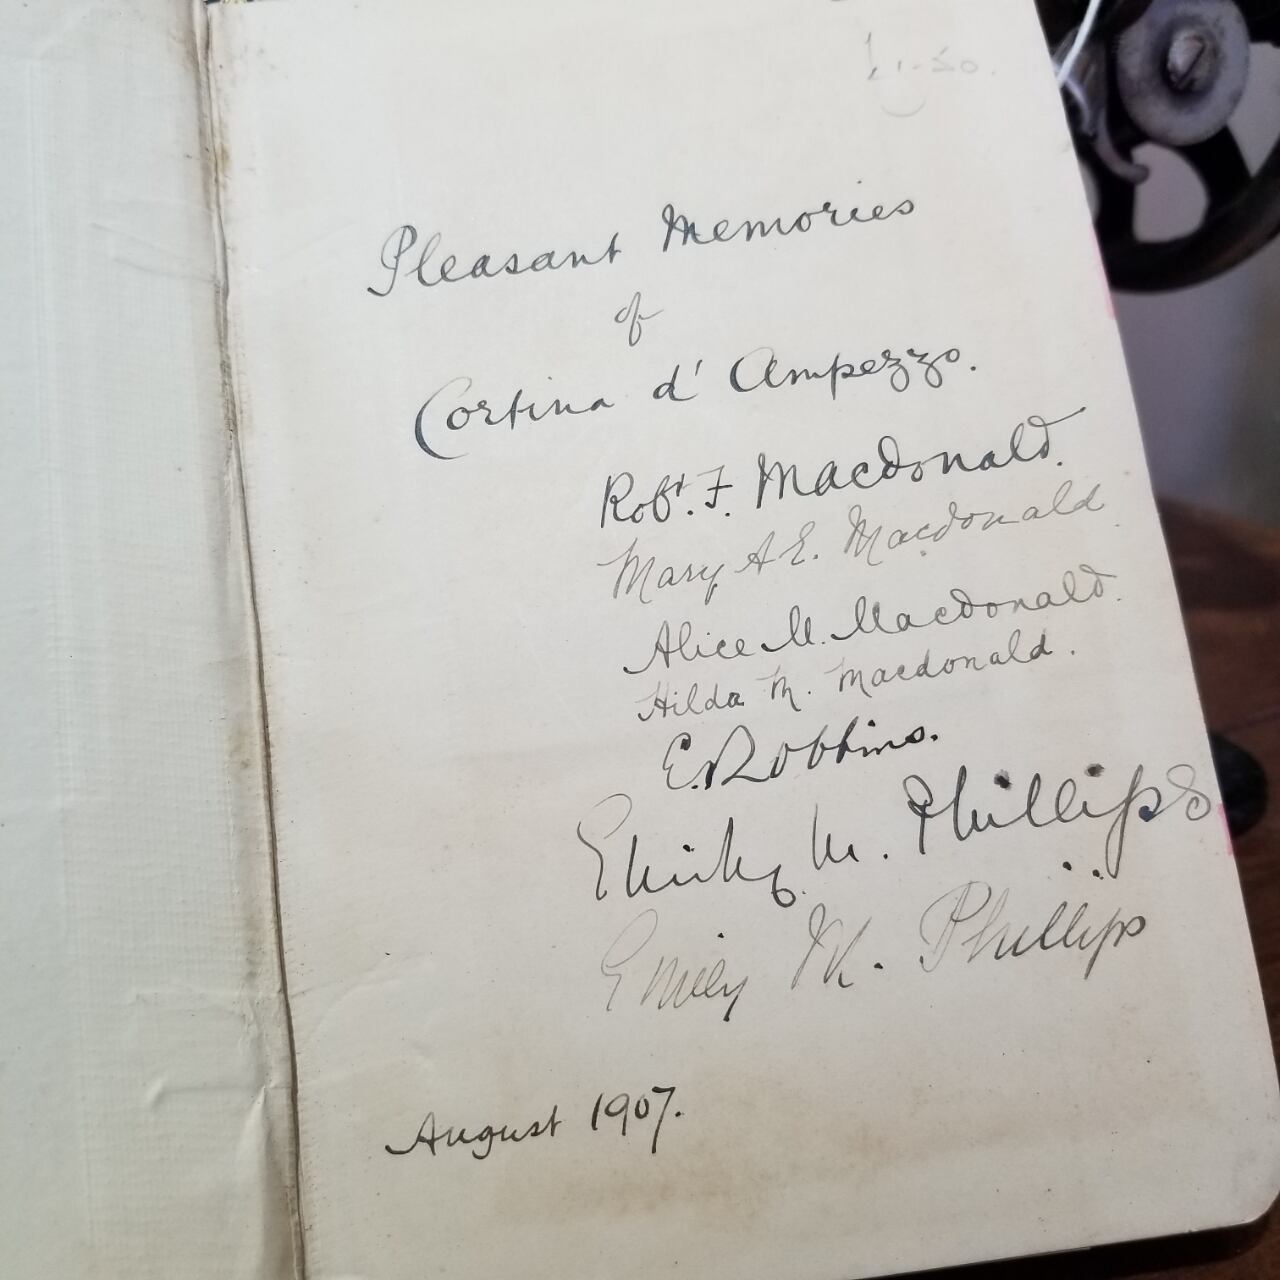 £1-50.
Pleasant Memories
of
Cortina d' Ampezzo.
Robt. F. Macdonald.
Mary A E. Macdonald.
Alice M. Macdonald.
Hilda M. Macdonald.
E. Robbins.
M. Phillips
Emily M. Phillips
August 1907.